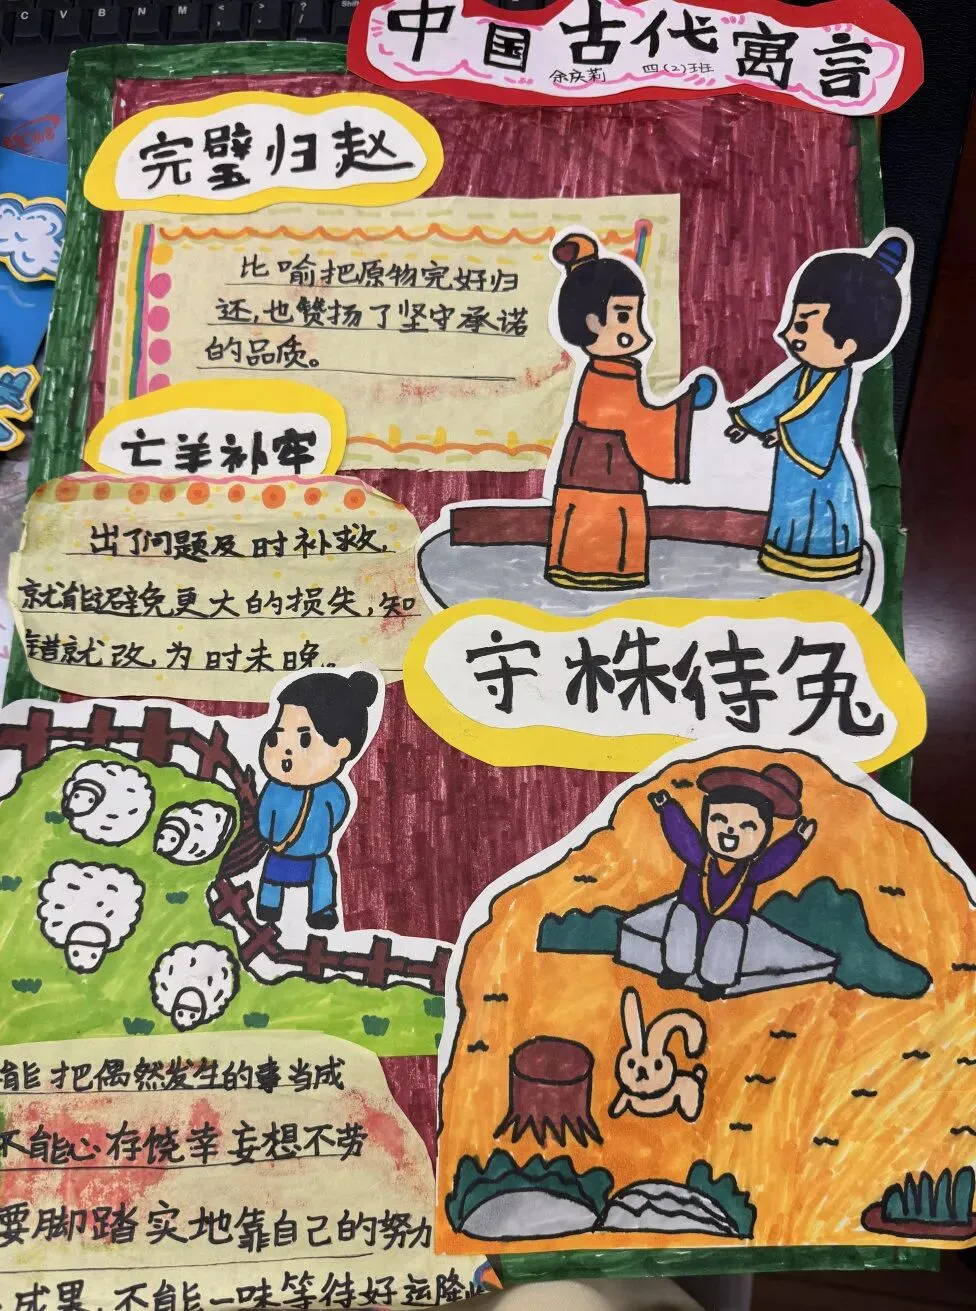 中国古代寓言
余庆莉 四(2)班
完璧归赵
比喻把原物完好归
还,也赞扬了坚守承诺
的品质。
亡羊补牢
出了问题及时补救,
就能避免更大的损失,知
错就改为时未晚。
守株待兔
能把偶然发生的事当成
不能心存饶幸妄想不劳
要脚踏实地靠自己的努力
成果,不能一味等待好运降临